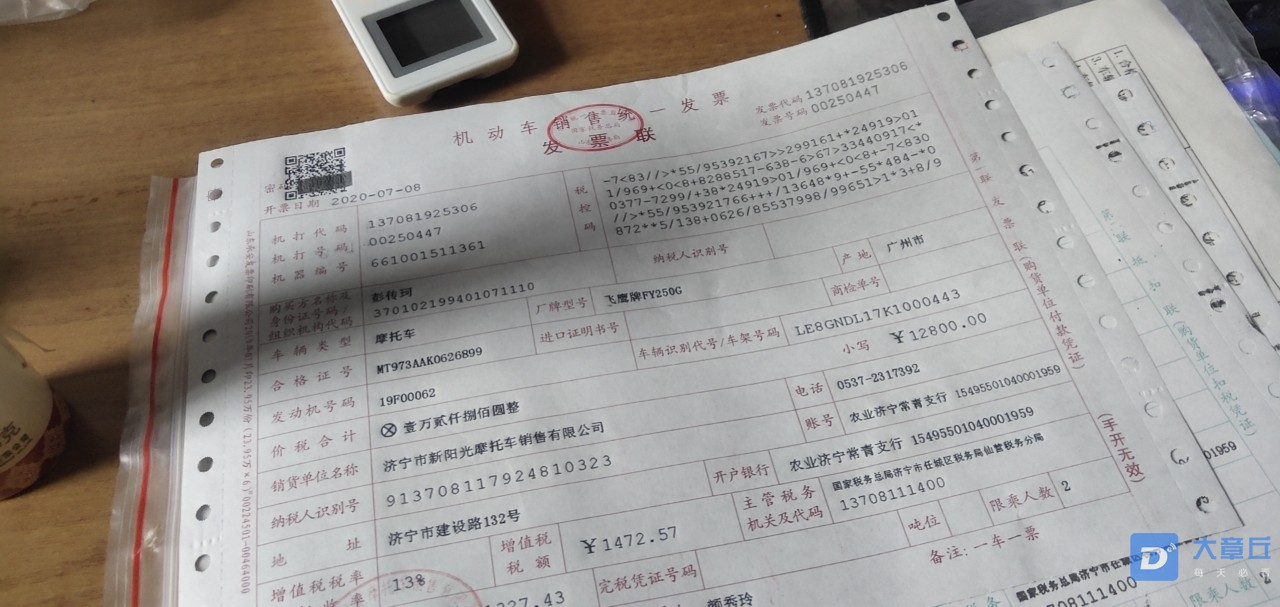 机动车销售统一发票
发票联
发票代码 137081925306
发票号码 00250447
开票日期 2020-07-08
机打代码 137081925306
机打号码 00250447
机器编号 661001511361
税控码
-7<83//>*55/95392167>>299161+*24919>01
1/969+<0<8+8288517-638-6>67>33440917<*
0377-7299/+38*24919>01/969+<0<8+-7<830
//>*55/953921766+++/13648*9+-55*484-*0
872**5/138+0626/85537998/99651>1*3+8/9
购买方名称及身份证号码/组织机构代码
彭传珂
370102199401071110
纳税人识别号
车辆类型 摩托车
厂牌型号 飞鹰牌FY250G
产地 广州市
合格证号 MT973AAK0626899
进口证明书号
商检单号
发动机号码 19F00062
车辆识别代号/车架号码 LE8GNDL17K1000443
价税合计 ⊗壹万贰仟捌佰圆整
小写 ￥12800.00
销货单位名称 济宁市新阳光摩托车销售有限公司
电话 0537-2317392
纳税人识别号 913708117924810323
账号 农业济宁常青支行 15495501040001959
地址 济宁市建设路132号
开户银行 农业济宁常青支行 15495501040001959
增值税税率 13%
增值税税额 ￥1472.57
主管税务机关及代码
国家税务总局济宁市任城区税务局仙营税务分局
13708111400
完税凭证号码
吨位
限乘人数 2
颜秀玲
备注:一车一票
第一联 发票联(购货单位付款凭证)
(手开无效)
第二联 抵扣联(购货单位扣税凭证)
大章丘
每天必看